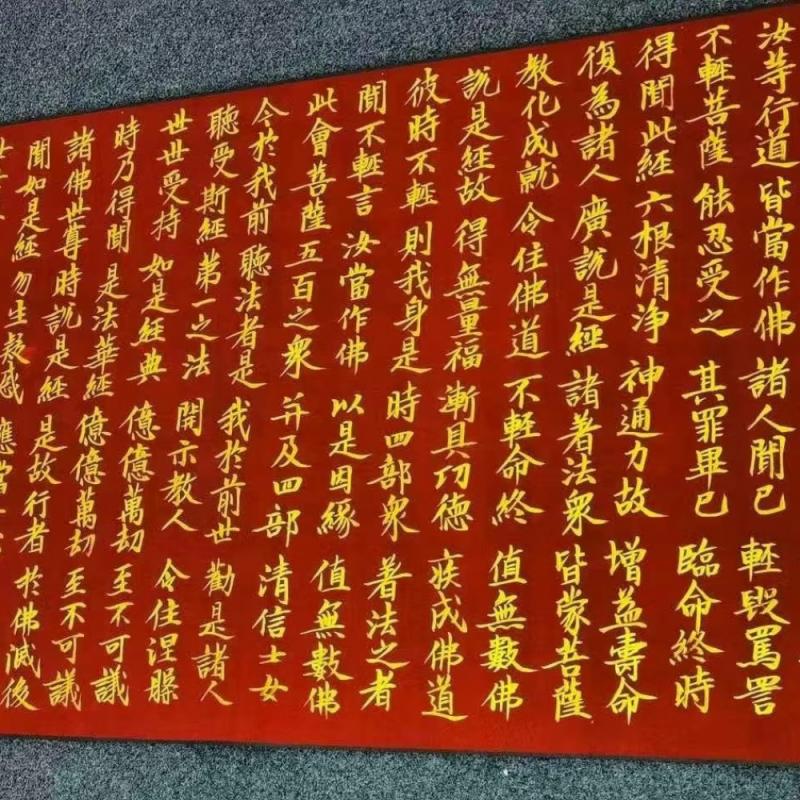 汝等行道 皆當作佛 諸人聞已 輕毀罵詈
不輕菩薩 能忍受之 其罪畢已 臨命終時
得聞此經 六根清淨 神通力故 增益壽命
復為諸人 廣說是經 諸著法衆 皆蒙菩薩
教化成就 令住佛道 不輕命終 值無數佛
說是經故 得無量福 漸具功德 疾成佛道
彼時不輕 則我身是 時四部衆 著法之者
聞不輕言 汝當作佛 以是因緣 值無數佛
此會菩薩 五百之衆 并及四部 清信士女
今於我前 聽法者是 我於前世 勸是諸人
聽受斯經 第一之法 開示教人 令住涅槃
世世受持 如是經典 億億萬劫 至不可議
時乃得聞 是法華經 億億萬劫 至不可議
諸佛世尊 時說是經 是故行者 於佛滅後
聞如是經 勿生疑惑 應當